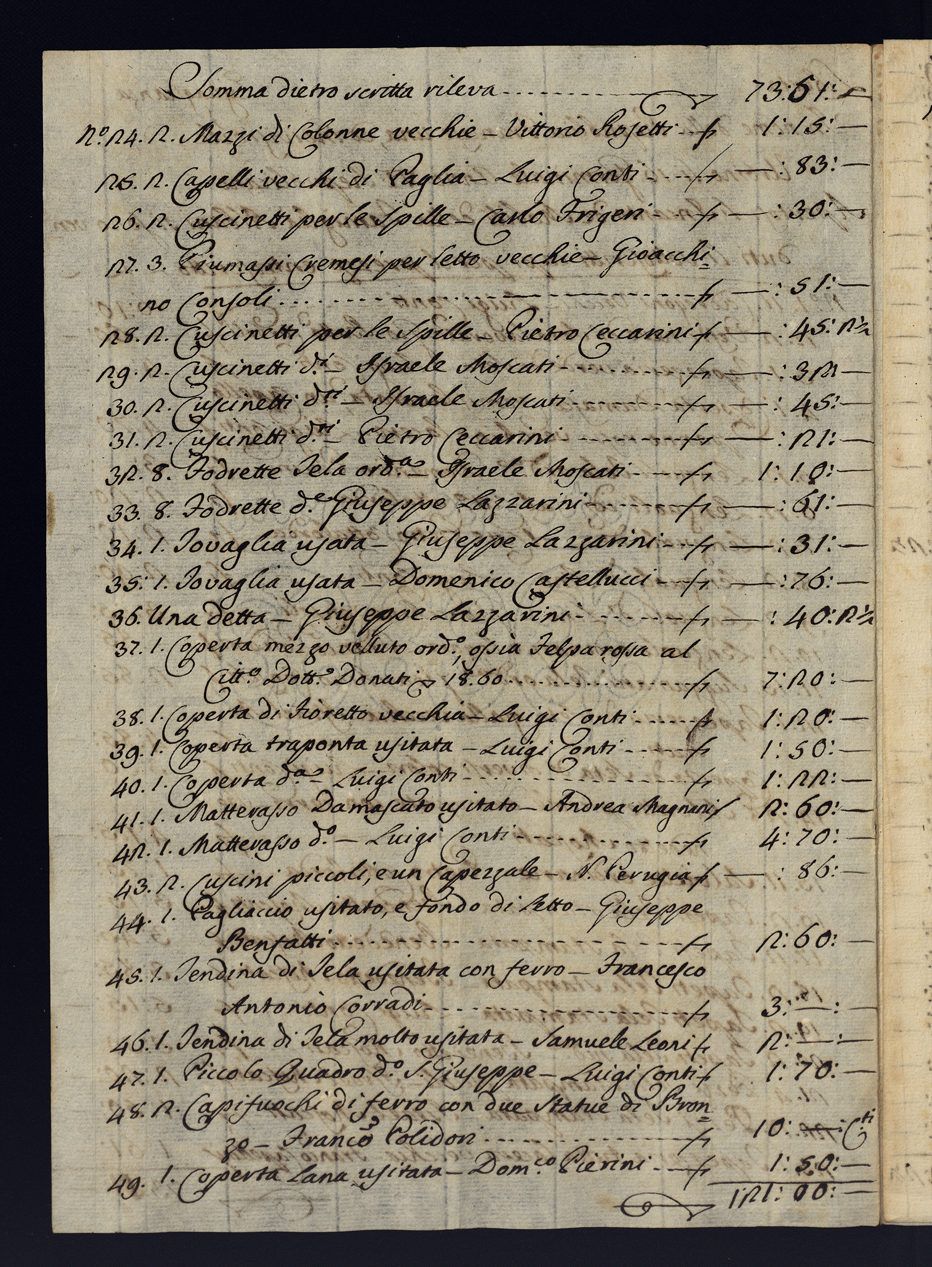 Somma dietro scritta rileva 73:51:—
N.o 24. 2. Mazzi di Colonne vecchie – Vittorio Rosetti 1:15:—
25. 2. Capelli vecchi di Paglia – Luigi Conti —:83:
26. 2. Cuscinetti per le spille – Carlo Frigeri —:30:—
27. 3. Piumassi Cremesi per letto vecchie – Gioacchi=
no Consoli —:51:—
28. 2. Cuscinetti per le Spille – Pietro Ceccarini —:45:2½
29. 2. Cuscinetti d.ti – Israele Moscati —:32—
30. 2. Cuscinetti d.tti – Israele Moscati —:45:
31. 2. Cuscinetti d.tti – Pietro Ceccarini —:21:—
32. 8. Fodrette Tela ord.a – Israele Moscati 1:10:—
33. 8. Fodrette d.e Giuseppe Lazzarini —:61:—
34. 1. Tovaglia usata – Giuseppe Lazzarini —:31:—
35: 1. Tovaglia usata – Domenico Castellucci —:76:—
36. Una detta – Giuseppe Lazzarini —:40:2½
37. 1. Coperta mezzo velluto ord.o, ossia Felpa rossa al
Citt.o Dott.e Donati 18.60 7:20:—
38. 1. Coperta di Fioretto vecchia – Luigi Conti 1:20:—
39. 1. Coperta traponta usitata – Luigi Conti 1:50:—
40. 1. Coperta d.a – Luigi Conti 1:22:—
41. 1. Matterasso Damascato usitato – Andrea Magnani 2:60:—
42. 1. Matterasso d.o – Luigi Conti 4:70:—
43. 2. Cuscini piccoli, e un Capezzale – N. Perugia —:86:—
44. 1. Pagliaccio usitato, e fondo di letto – Giuseppe
Benfatti 2:60:—
45. 1. Tendina di Tela usitata con ferro – Francesco
Antonio Corradi 3:—:—
46. 1. Tendina di Tela molto usitata – Samuele Leoni 2:—:—
47. 1. Piccolo Quadro d.o S. Giuseppe – Luigi Conti 1:70:—
48. 2. Capifuochi di ferro con due Statue di Bron=
zo – Franco Polidori 10:
49. 1. Coperta Lana usitata – Dom.co Pierini 1:50:—
121:00:—